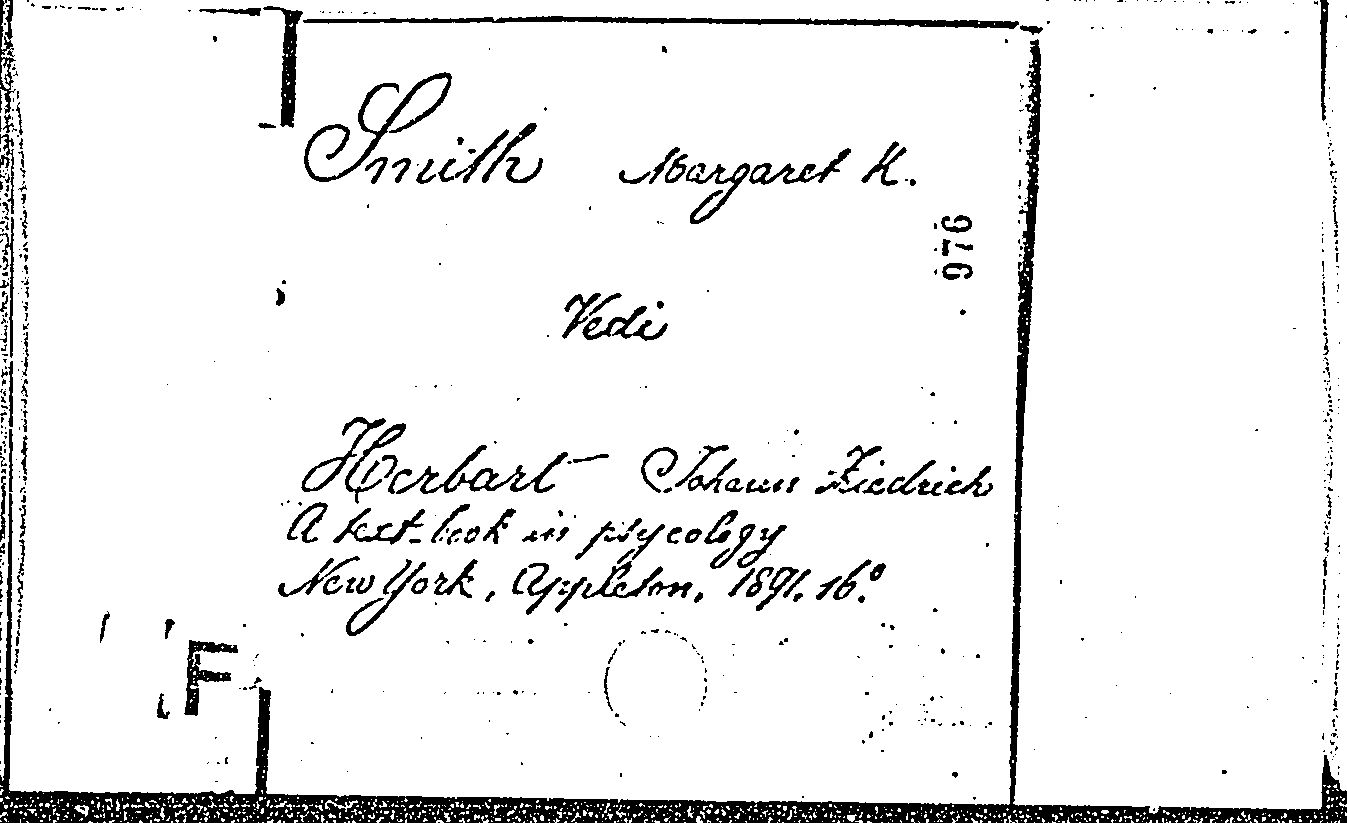 Smith Margaret K.
976
Vedi
Herbart Johann Friedrich
A text-book in psycology
New York, Appleton, 1891. 16.°
F